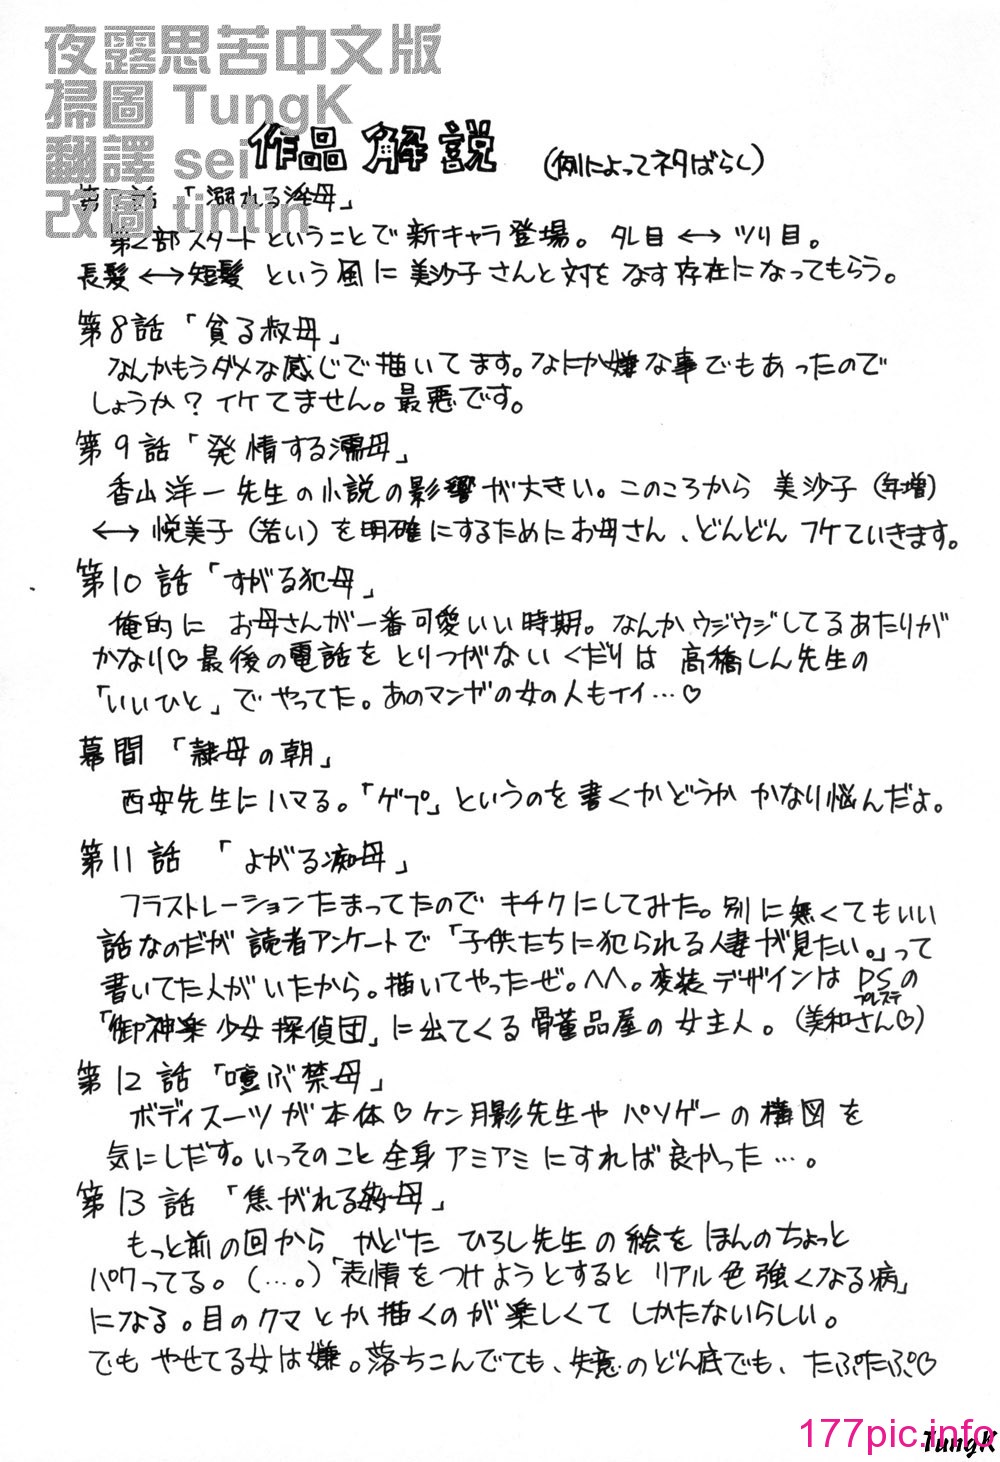 夜露思苦中文版
掃圖 TungK
翻譯 sei
改圖 tintin
作品解説 (例によってネタばらし)
第7話「溺れる淫母」
第2部スタートということで新キャラ登場。タレ目←→ツリ目。
長髪←→短髪 という風に美沙子さんと対をなす存在になってもらう。
第8話「貧る叔母」
なんかもうダメな感じで描いてます。なにか嫌な事でもあったので
しょうか?イケてません。最悪です。
第9話「発情する濡母」
香山洋一先生の小説の影響が大きい。このころから 美沙子(年増)
←→ 悦美子(若い)を明確にするためにお母さん、どんどんフケていきます。
第10話「すがる犯母」
俺的に お母さんが一番可愛いい時期。なんかウジウジしてるあたりが
かなり♡最後の電話をとりつがないくだりは 高橋しん先生の
「いいひと」でやってた。あのマンガの女の人もイイ…♡
幕間「隷母の朝」
西安先生にハマる。「ゲプ」というのを書くかどうか かなり悩んだよ。
第11話 「よがる痴母」
フラストレーションたまってたので キチクにしてみた。別に無くてもいい
話なのだが読者アンケートで「子供たちに犯られる人妻が見たい。」って
書いてた人がいたから。描いてやったぜ。^^。変装デザインはPSの
プレステ
「御神楽少女探偵団」に出てくる骨董品屋の女主人。(美和さん♡)
第12話「喧ぶ禁母」
ボディスーツが本体♡ケン月影先生やパソゲーの構図を
気にしだす。いっそのこと全身アミアミにすれば良かった…。
第13話「焦がれる姦母」
もっと前の回から かどた ひろし先生の絵をほんのちょっと
パクってる。(…。)「表情をつけようとするとリアル色強くなる病」
になる。目のクマとか描くのが楽しくてしかたないらしい。
でもやせてる女は嫌。落ちこんでても、失意のどん底でも、たぷたぷ♡
177pic.info
TungK